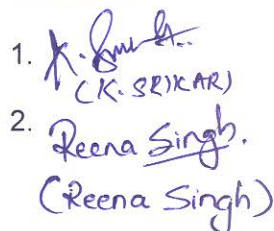 1. K.
(K. SRIKAR)
2. Reena Singh.
(Reena Singh)